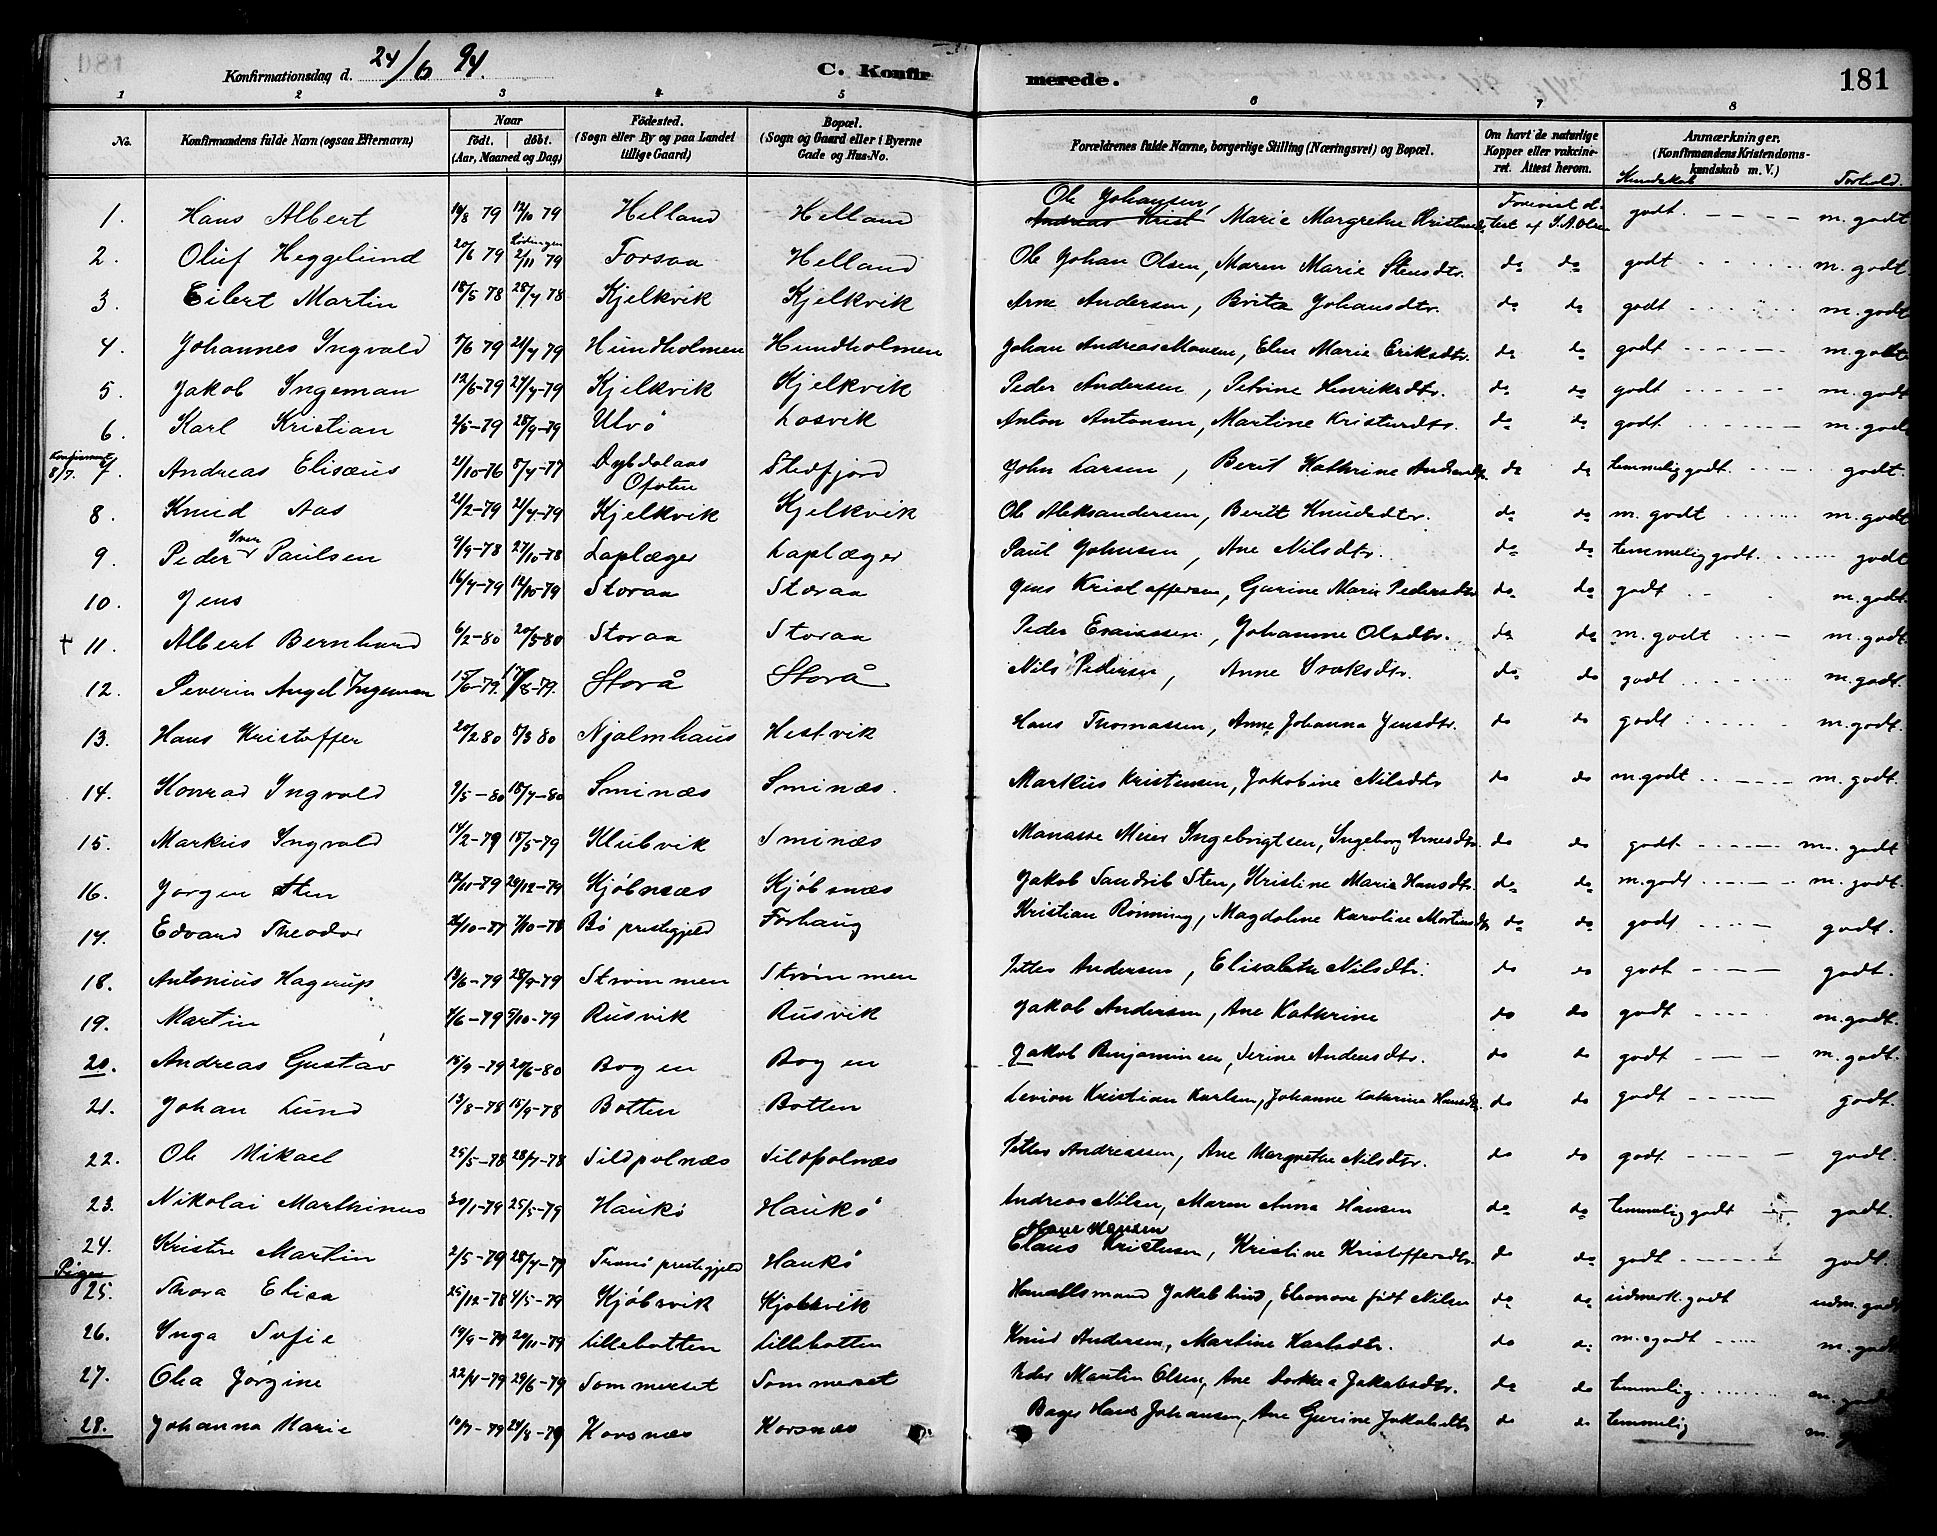 Konfirmationsdag d. 24/6 94. C. Konfirmerede. 181
1 2 3 4 5 6 7 8
No. Konfirmandens fulde Navn (ogsaa Efternavn) Naar født. døbt. (Aar, Maaned og Dag) Fødested. (Sogn eller By og paa Landet tillige Gaard) Bopæl. (Sogn og Gaard eller i Byerne Gade og Hus-No. Forældrenes fulde Navne, borgerlige Stilling (Næringsvei) og Bopæl. Om havt de naturlige Kopper eller vaccineret. Attest herom. Anmærkninger. (Konfirmandens Kristendomskundskab m. V.) Kundskab Forhold.
1. Hans Albert 14/8 79 12/10 79 Helland Helland Ole Johansen, Marie Margrethe godt. m. godt
2. Oluf Heggelund 20/6 79 Lødingen 2/11 79 Forsaa Helland Ole Johan Olsen, Maren Marie Stensdtr. do do godt m. godt.
3. Eilert Martin 18/5 78 28/7 78 Kjelkvik Kjelkvik Arne Andersen, Brita Johansdtr. do do godt m. godt
4. Johannes Ingvald 7/6 79 21/7 79 Hundholmen Hundholmen Johan Andreas Monsen, Elen Marie Eriksdtr. do do godt m. godt
5. Jakob Ingeman 12/6-79 27/7-79 Kjelkvik Kjelkvik Peder Andersen, Petrine Henriksdtr. do do godt m. godt
6. Karl Kristian 2/5-79 28/9-79 Ulvø Losvik Anton Antonsen, Martine do do godt m. godt
Konfirmert 8/7. 7. Andreas Elisæus 21/10-76 8/4-77 Dybdalaas Ofoten Stefjord John Larsen, Berit Kathrine do do temmelig godt. godt.
8. Knud Aas 21/2-79 21/4-79 Kjelkvik Kjelkvik Ole Aleksandersen, Berit Knudsdtr. do do m. godt m. godt
9. Peder Iver Paulsen 9/9-78 27/10-78 Laplæger Laplæger Paul Johnsen, Ane Nilsdtr. do do temmelig godt. godt
10. Jens 16/7-79 12/10-79 Storaa Storaa Jens Kristoffersen, Gurine Marie Pedersdtr do do godt m. godt.
† 11. Albert Bernhard 6/2-80 20/5-80 Storaa Storaa Peder Esaiassen, Johanne Olsdtr. do do m. godt m. godt.
12. Severin Angel Ingeman 15/6-79. 17/8-79. Storå Storå Nils Pedersen, Anne Isaksdtr. do do godt m. godt.
13. Hans Kristoffer 20/2 80 8/3 80 Njalmhaus Hestvik Hans Thomassen, Anne Johanna Jensdtr. do do godt m. godt.
14. Konrad Ingvald 9/5-80 18/7-80 Sminæs Sminæs. Markus Kristensen, Jakobine Nilsdtr do do m. godt m. godt.
15. Markus Ingvald 14/2-79 18/5-79 Klubvik Sminæs Manasse Meier Ingebrigtsen, Ingeborg Arnesdtr. do do godt m. godt
16. Jørgen Sten 12/11-79 20/12-79 Kjøbnæs Kjøbnæs Jakob Sandvik Sten, Kristine Marie Hansdtr. do do m. godt m. godt.
17. Edvard Theodor 24/10-77 7/10-78 Bø prestegjeld Forhaug Kristian Rønning, Magdalene Karoline do do godt godt.
18. Antonius Hagerup 13/6-79 28/9-79 Strømmen Strømmen Petter Andersen, Elisabeth Nilsdtr. do do godt godt.
19. Martin 4/6-79 5/10-79 Rusvik Rusvik Jakob Andersen, Ane Kathrine do do godt m. godt.
20. Andreas Gustav 15/9-79 20/6-80 Bogen Bogen Jakob Benjaminsen, Serine Andersdtr. do do godt m. godt.
21. Johan Lund 13/8-78 15/9-78 Botten Botten Levion Kristian Karlsen, Johanne Kathrine Hansdtr. do do godt godt.
22. Ole Mikael 25/5-78 28/7-78 Sildpolnæs Sildpolnæs Petter Andreassen, Ane Margrethe Nilsdtr. do do godt godt.
23. Nikolai Marthinus 30/1-79 25/5-79 Haukø Haukø Andreas Nilsen, Maren Anna Hansen do do temmelig godt godt.
24. Kristen Martin 2/5-79 28/7-79 Tranø prestegjeld Haukø Kristensen, Kristine Kristoffersdtr. do do godt godt.
Piger
25. Thora Elisa 25/12-78 4/5-79 Kjøbsvik Kjøbsvik Handelsmand Jakob Lund, Eleonore født Nilsen do do udmerk. godt udm. godt
26. Inga Sofie 19/9-79 29/11-79 Lillebotten Lillebotten Knud Andersen, Martine Karlsdtr. do do m. godt m. godt
27. Olea Jørgine 22/4-79 29/6-79 Sommerset Sommerset Peder Martin Olsen, Ane Dorthea Jakobsdtr. do do temmelig m. godt
28. Johanna Marie 10/7-79 24/8-79 Korsnæs Korsnæs Bager Hans Johansen, Ane Gurine Jakobsdtr do do temmelig m.